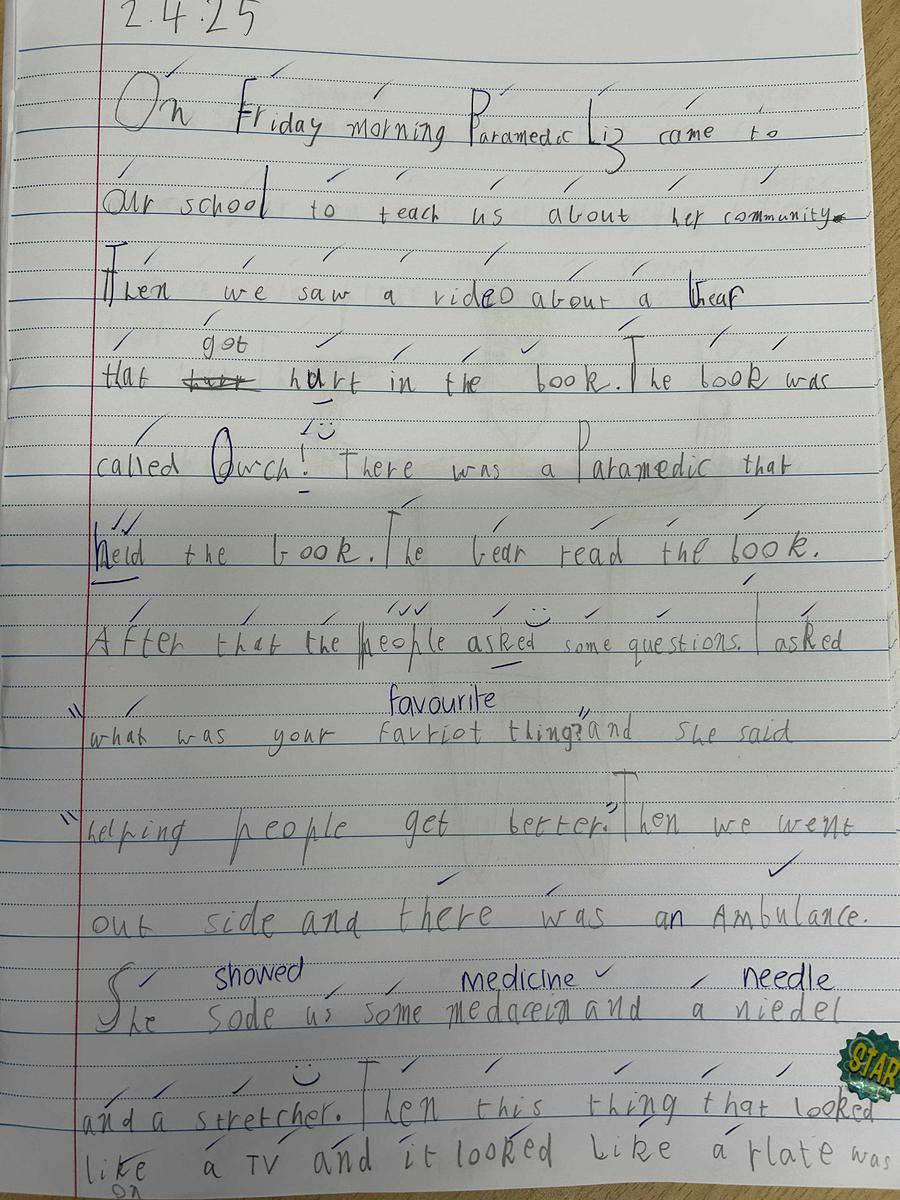 2.4.25
On Friday morning Paramedic Liz came to
Our school to teach us about her community.
Then we saw a video about a bear
got
that hurt in the book. The book was
called Owch! There was a Paramedic that
held the book. The bear read the book.
After that the people asked some questions. I asked
favourite
"what was your favriot thing?" and she said
"helping people get better." Then we went
out side and there was an Ambulance.
showed medicine needle
She sode us some medacein and a niedel
STAR
and a stretcher. Then this thing that looked
like a TV and it looked like a flate was
on